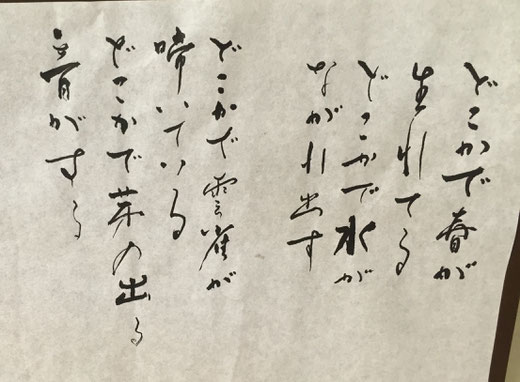 どこかで春が
生れてる
どこかで水が
ながれ出す
どこかで雲雀が
啼いている
どこかで芽の出る
音がする